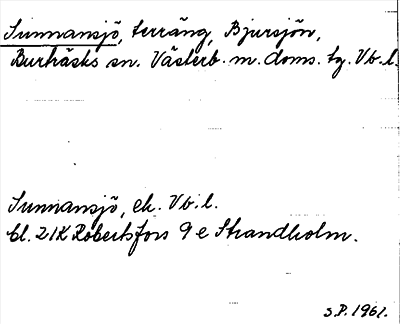 Sunnansjö, terräng, Bjursjön,
Burträsks sn. Västerb. m. doms. tg. Vb. l.
Sunnansjö, ek. Vb. l.
bl. 21K Robertsfors 9 e Strandholm.
S.P. 1961.